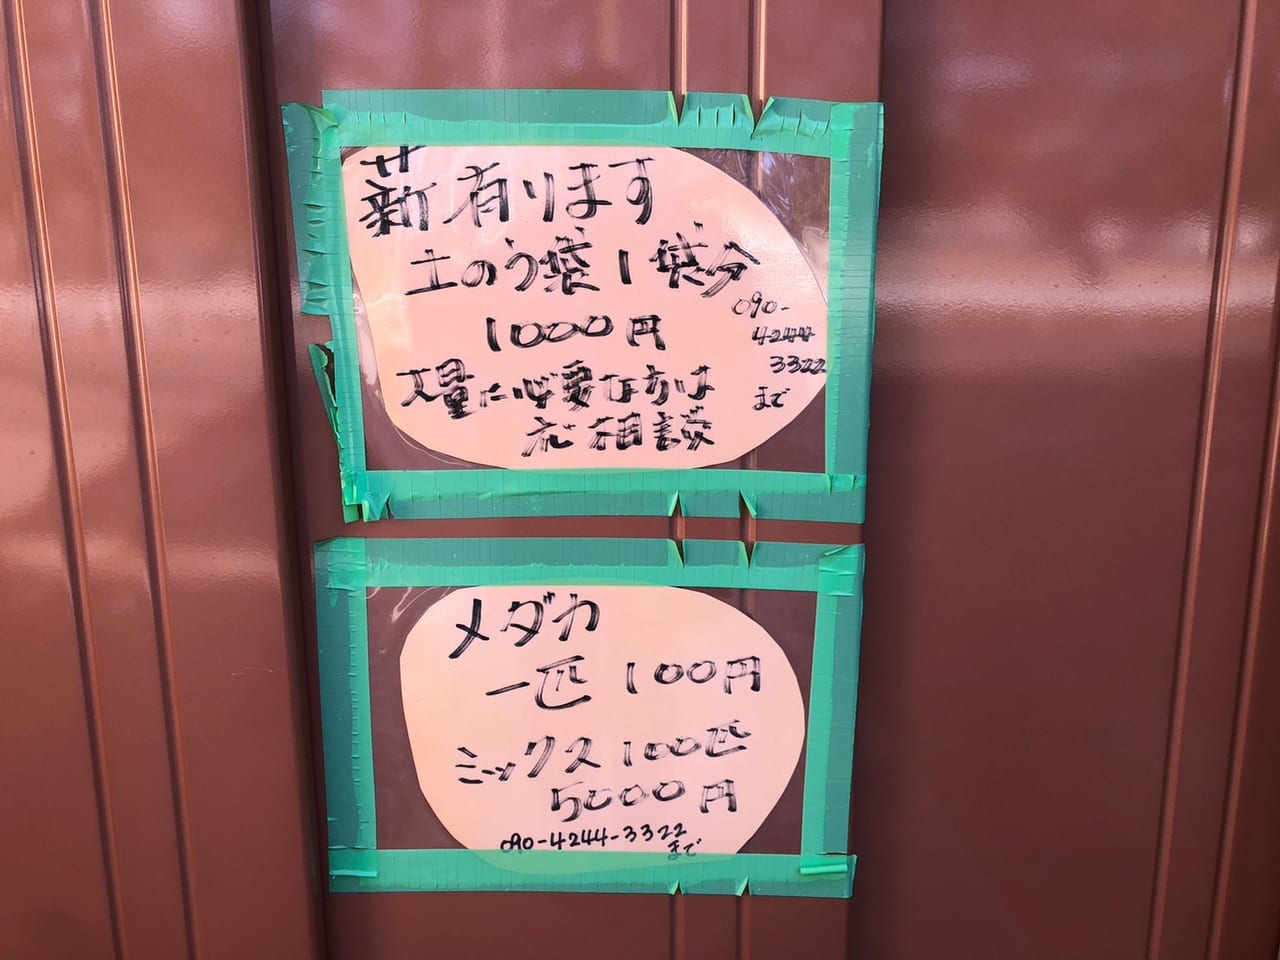 薪有ります
土のう袋1袋分
1000円
大量に必要な方は
応相談
090-
4244
3322
まで
メダカ
一匹 100円
ミックス100匹
5000円
090-4244-3322
まで